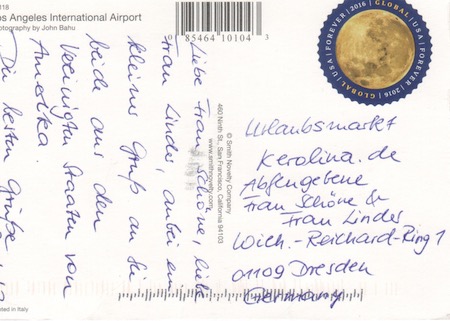 118
os Angeles International Airport
hotography by John Bahu
0 85464 10104 3
GLOBAL | USA | FOREVER | 2016
GLOBAL | USA | FOREVER | 2016
Liebe Frau Schöne, liebe
Frau Linder, anbei ein
kleiner Gruß an Sie
beide aus den
Vereinigten Staaten von
Amerika.
Die besten Grüße
© Smith Novelty Company
460 Ninth St., San Francisco, California 94103
www.smithnovelty.com
Urlaubsmarkt
Kerolina.de
Abfengebene
Frau Schöne &
Frau Linder
Wich.-Reichard-Ring 1
01109 Dresden
Germany
nted in Italy